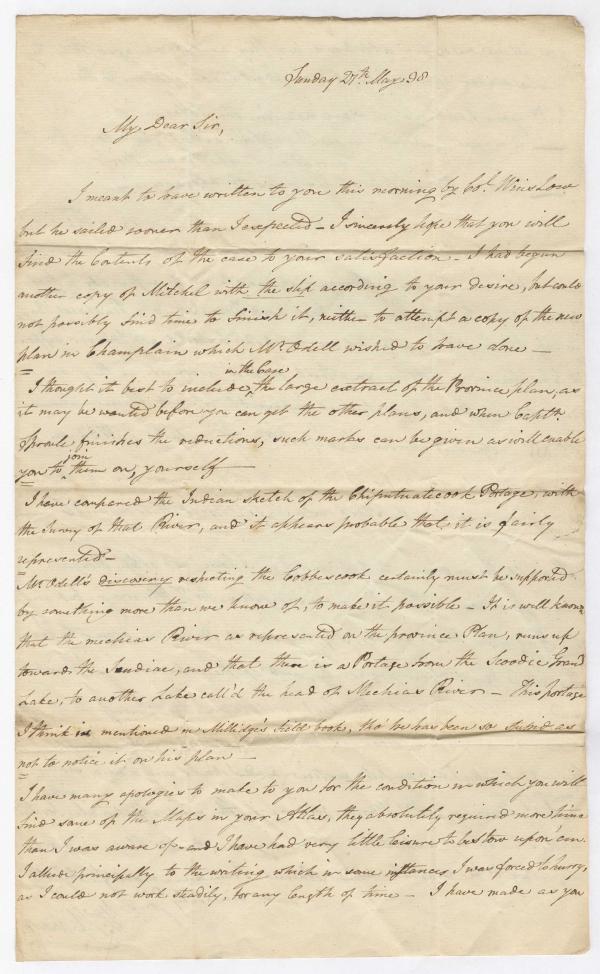 Sunday 27th. May 98
My Dear Sir,
I meant to have written to you this morning by Col. Winslow
but he sailed sooner than I expected – I sincerely hope that you will
find the Contents of the case to your satisfaction – I had begun
another copy of Mitchel with the slip according to your desire, but could
not possibly find time to finish it, neither to attempt a copy of the new
plan in Champlain which Mr. Odell wished to have done –
in the Case
I thought it best to include ^ the large extract of the Province plan, as
it may be wanted before you can get the other plans, and when Captn.
Sproule finishes the reductions, such marks can be given as will enable
join
you to ^ them on, yourself –
I have compared the Indian sketch of the Chiputnatecook Portage, with
the survey of that River, and it appears probable that it is fairly
represented –
Mr. Odell's discovery respecting the Cobbescook certainly must be supported
by something more than we know of, to make it possible – It is well known
that the mechias River as represented on the province Plan, runs up
towards the Scudiac, and that there is a Portage from the Scoodic Grand
Lake, to another Lake call'd the head of Mechias River – This portage
I think is mentioned in Millidge's field book, tho' he has been so stupid as
not to notice it on his plan –
I have many apologies to make to you for the condition in which you will
find some of the Maps in your Atlas, they absolutely required more time
than I was aware of – and I have had very little leisure to bestow upon 'em
I allude principally to the writing which in some instances I was forced to hurry,
as I could not work steadily, for any length of time – I have made as you